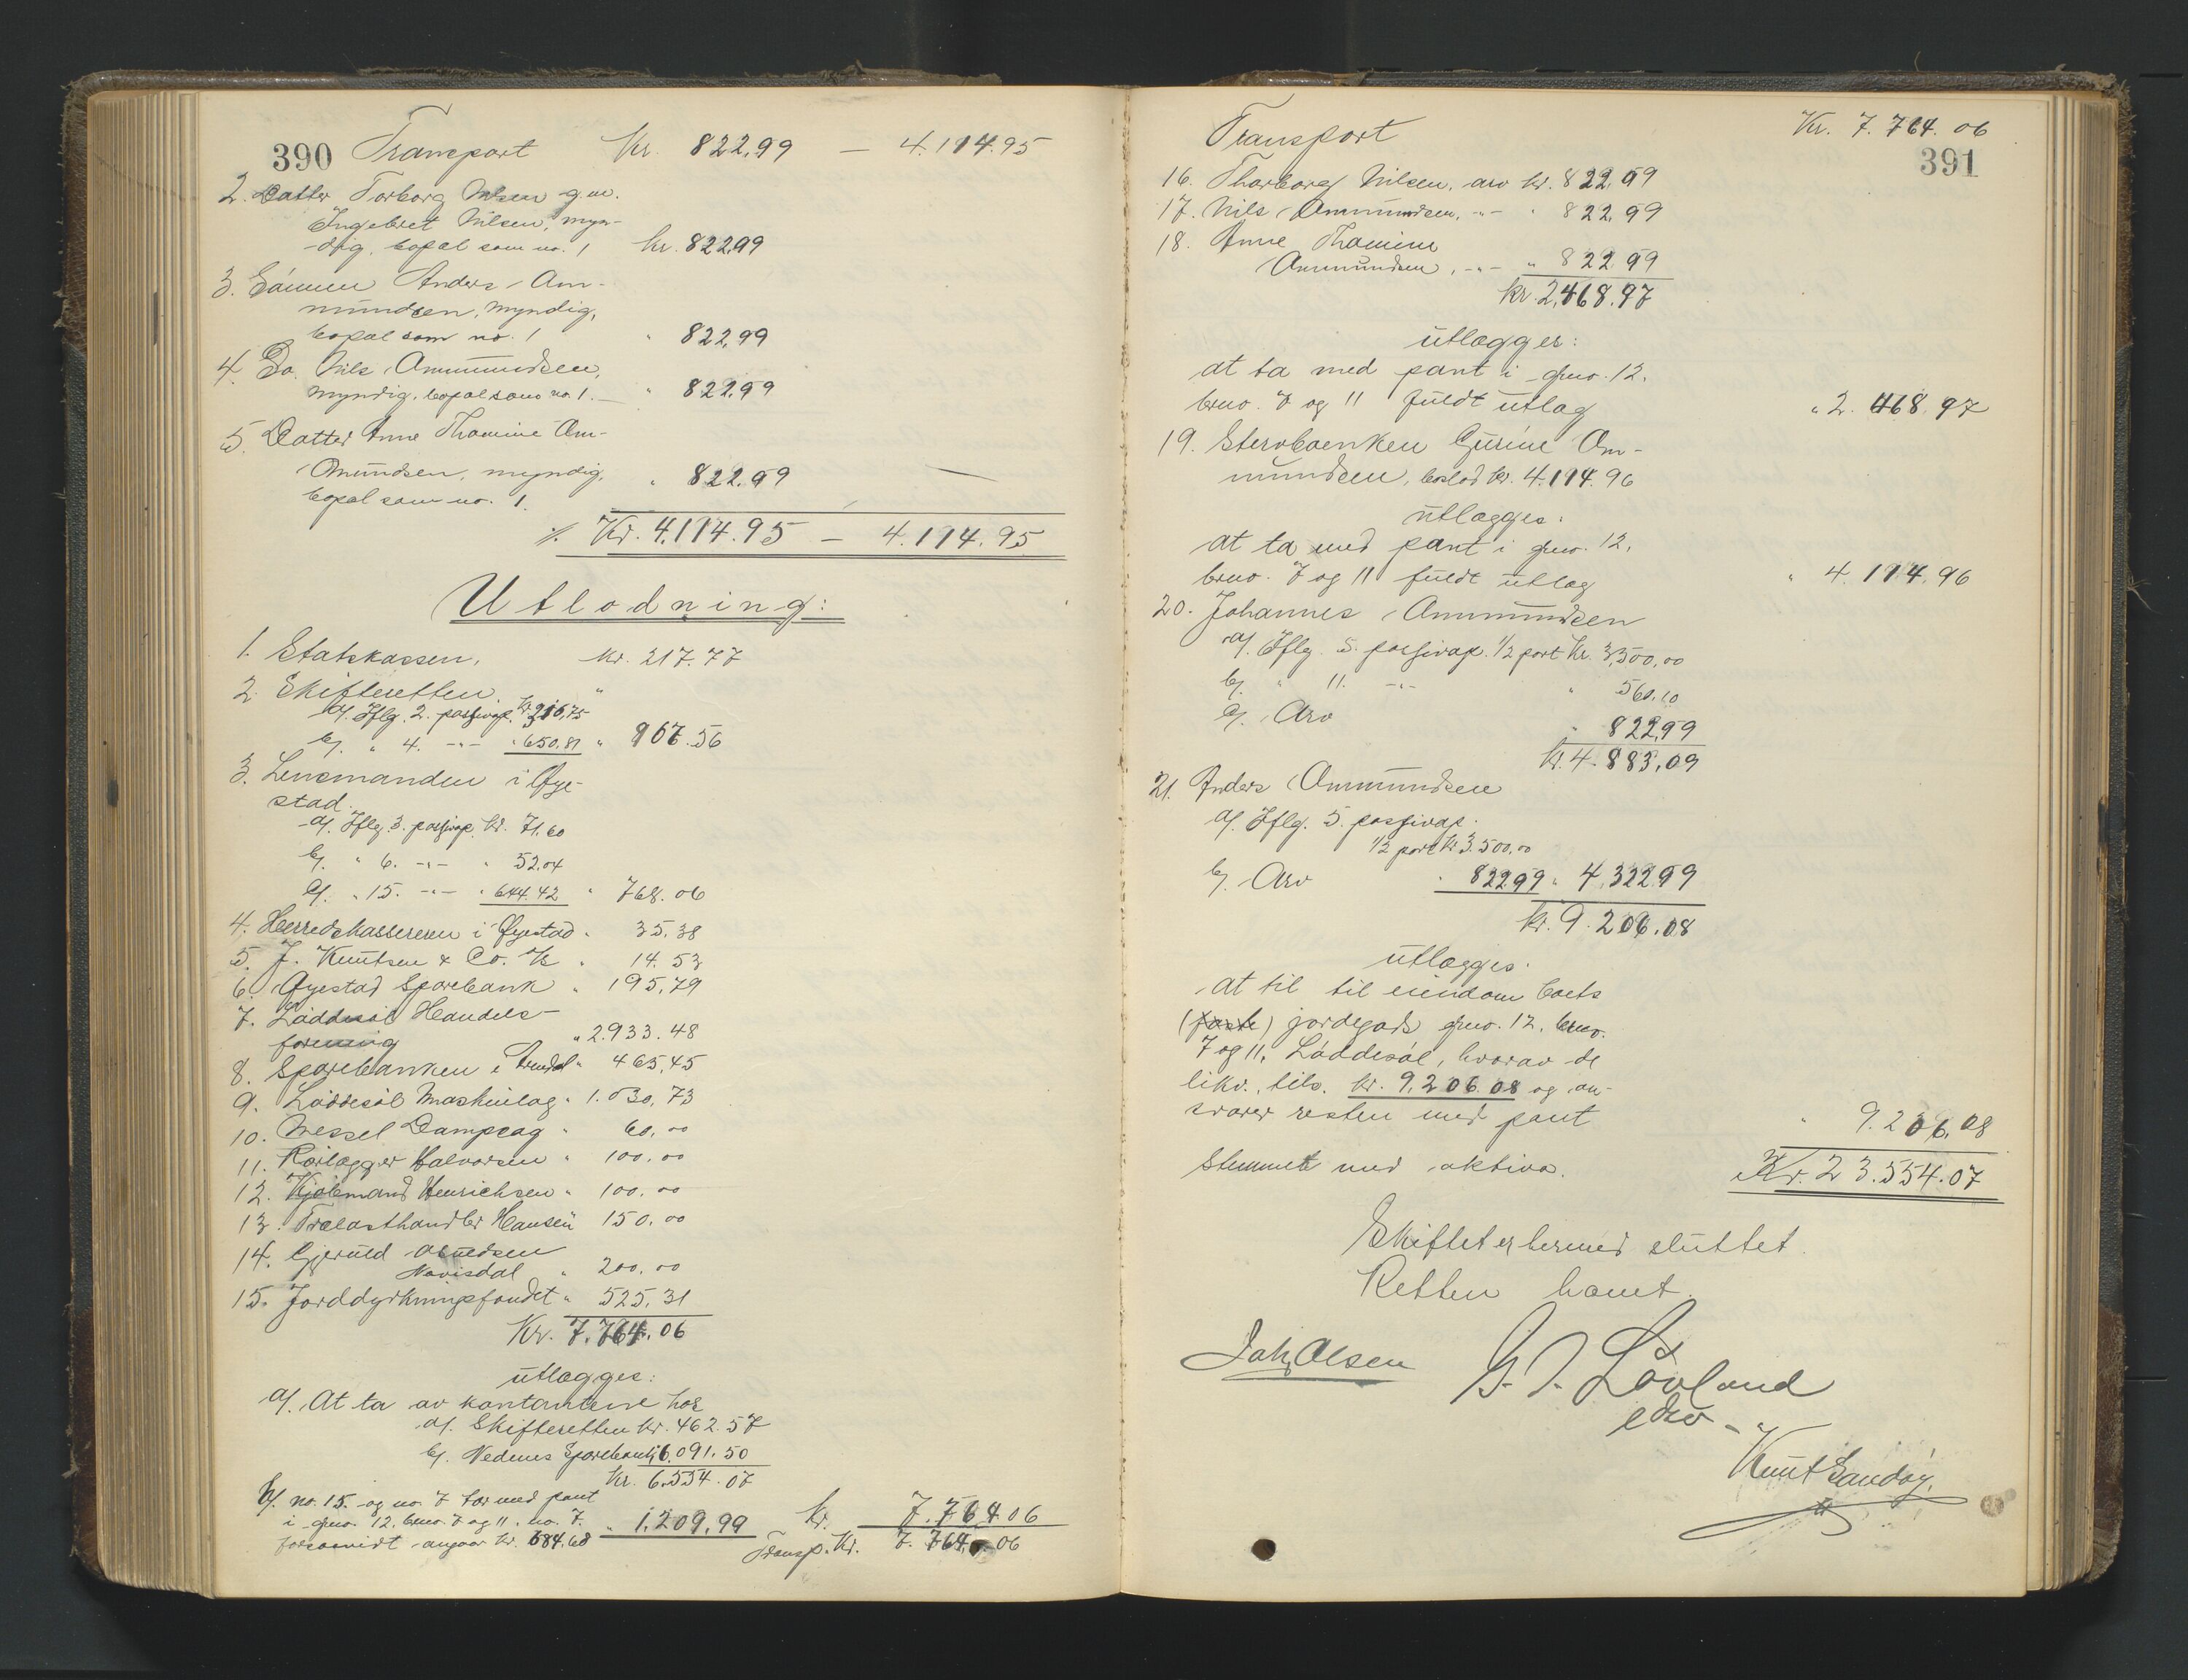 390 Transport Kr. 822,99 — 4.114.95
2. Datter Torborg Nilsen g.m.
Ingebret Nilsen, myn-
dig, bopæl som no. 1 kr. 822,99
3. Sönnen Anders Am-
mundsen, myndig,
bopæl som no. 1 " 822,99
4. Do. Nils Ammundsen,
myndig, bopæl som no. 1. — " 822,99
5. Datter Anne Thomine Am-
mundsen, myndig, " 822,99
bopæl som no. 1.
Kr. 4.114.95 — 4.114.95
Utlodning:
1. Statskassen, kr. 217.77
2. Skifteretten "
a/. Iflg. 2. passivap. kr. 216,75
b/. " 4. -"- " 650.81 " 867.56
3. Lensmanden i Øye-
stad.
a/. Iflg. 3. passivap. kr. 71.60
b/. " 6. -"- " 52.04
c/. " 15. -"- " 644.42 " 768.06
4. Herredskassereren i Øyestad " 35.38
5. J. Knutsen & Co. A/s " 14.53
6. Øyestad Sparebank " 195,79
7. Løddesøl Handels-
forening " 2.933.48
8. Sparebanken i Arendal " 465,45
9. Løddesøl Maskinlag " 1.030,73
10. Messel Dampsag " 60,00
11. Rørlægger Halvorsen " 100.00
12. Kjøbmand Henrichsen " 100.00
13. Trælasthandler Hansen 150.00
14. Gjeruld Knudsen
Navisdal " 200,00
15. Jorddyrkningsfondet " 525,31
Kr. 7.764.06
utlægges:
a/. At ta av kontantene hos
a/. Skifteretten kr. 462.57
b/. Nedenes Sparebank " 6.091.50
Kr. 6.554.07
b/. no. 15. og no. 7 tar med pant
i gno. 12. bno. 7 og 11, no. 7. " 1.209.99 kr. 7.764.06
forsaavidt angaar kr. 684,68 Transp. Kr. 7.764.06
Transport Kr. 7.764.06
391
16. Thorborg Nilsen, arv kr. 822,99
17. Nils Ammundsen, -"- " 822,99
18. Anne Thomine
Ammundsen, -"- " 822,99
kr. 2,468.97
utlægges:
at ta med pant i gno. 12,
bno. 7 og 11 fuldt utlæg " 2.468.97
19. Stervboenken Gurine Am-
mundsen, boslod kr. 4.114.96
utlægges:
at ta med pant i gno. 12,
bno. 7 og 11 fuldt utlæg " 4.114.96
20. Johannes Ammundsen
a/. Iflg. 5. passivap. 1/2 part kr. 3,500,00
b/. " 11. -"- " 560.10
c/. Arv " 822,99
kr. 4.883,09
21. Anders Ammundsen
a/. Iflg. 5. passivap.
1/2 part kr. 3.500.00
b/. Arv " 822,99 " 4.322,99
kr. 9.206.08
utlægges:
at til til eiendom boets
(faste) jordegods gno. 12, bno.
7 og 11, Løddesøl, hvorav de
likv. tils. kr. 9,206.08 og an-
svarer resten med pant " 9.206,08
Stemmet med aktiva. Kr. 23.554.07
Skiftet er hermed sluttet.
Retten hævet.
Joh. Olsen G. T. Lövland
edsv
Knut Sandøy.